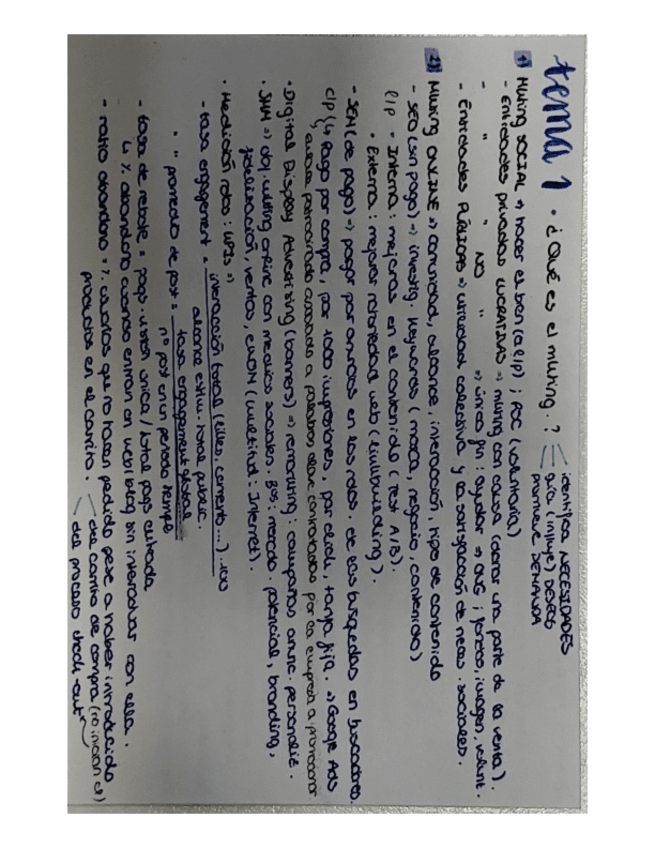 tema 1 • ¿Qué es el mking.?
identifica NECESIDADES
guía (influye) DESEOS
promueve DEMANDA
1) Mking SOCIAL => hacer el bien (a l/p) ; RSC (voluntaria)
- Entidades privadas LUCRATIVAS => mking con causa (donar una parte de la venta).
- " " NO " => único fin: ayudar => ONG ; fondos, imagen, volunt.
- Entidades PÚBLICAS => utilidad colectiva y la satisfacción de neces. sociales.
2) Mking ONLINE => comunidad, alcance, interacción, tipo de contenido
- SEO (sin pago) => investig. keywords (marca, negocio, contenido)
l/p • Interna: mejoras en el contenido (Test A/B).
• Externa: mejorar notoriedad web (linkbuilding).
- SEM (de pago) => pagar por anuncios en los rdos. de las búsquedas en buscadores.
c/p ↳ Pago por compra, por 1000 impresiones, por click, tarifa fija. => Google Ads
↳ enlace patrocinado asociado a palabras clave contratadas por la empresa a promocionar
• Digital Display Advertising (banners) => remarking: campañas anunc. personaliz.
• SMM => obj. mking online con medios sociales. Bºs: mercado potencial, branding,
fidelización, ventas, eWOM (multitud: Internet).
• Medición rdos: KPIs =>
- tasa engagement = interacción total (likes, coments...) · 100
alcance estim. total public.
• " promedio de post = tasa engagement global
nº post en un periodo tiempo
- tasa de rebote = pags. visitas única / total pags visitada
↳ % abandono cuando entran en web/blog sin interactuar con ella.
- ratio abandono = % usuarios que no hacen pedido pese a haber introducido
productos en el carrito.
del carrito de compra (no inician el)
del proceso check-out